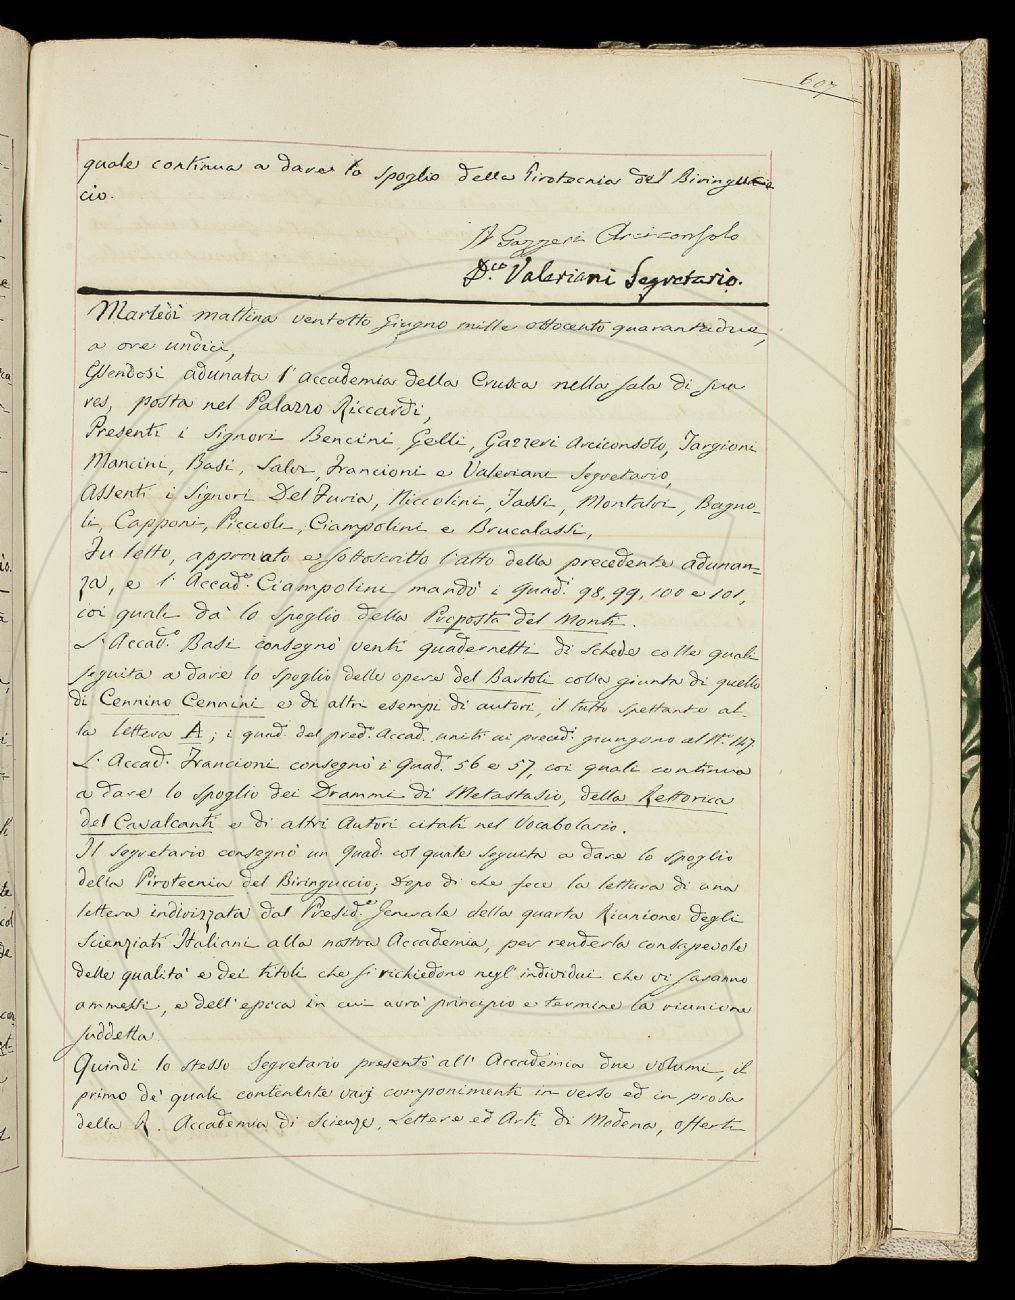 607
quale continua a dare lo spoglio della Pirotecnia del Biringuc
cio.
Gazzeri Arciconsolo
D.co Valeriani Segretario.
Martedì mattina ventotto Giugno mille ottocento quarantadue,
a ore undici,
Essendosi adunata l'Accademia della Crusca nella sala di sua
res, posta nel Palazzo Riccardi,
Presenti i Signori Bencini, Gelli, Gazzeri Arciconsolo, Targioni
Mancini, Basi, Salvi, Francioni e Valeriani Segretario,
Assenti i Signori Del Furia, Niccolini, Tassi, Montalvi, Bagno=
li, Capponi, Piccioli, Ciampolini e Brucalassi,
Fu letto, approvato e sottoscritto l'atto della precedente adunan=
za, e l'Accad.o Ciampolini mandò i Quad.i 98, 99, 100 e 101,
coi quali dà lo spoglio della Proposta del Monti.
L'Accad.o Basi consegnò venti quadernetti di schede colle quali
seguita a dare lo spoglio delle opere del Bartoli colla giunta di quello
di Cennino Cennini e di altri esempi di autori, il tutto spettante al-
la lettera A; i quad.i del pred.o Accad. uniti ai preced.i giungono al N.o 147.
L'Accad. Francioni consegnò i Quad.i 56 e 57, coi quali continua
a dare lo spoglio dei Drammi di Metastasio, della Rettorica
del Cavalcanti e di altri Autori citati nel Vocabolario.
Il Segretario consegnò un Quad. col quale seguita a dare lo spoglio
della Pirotecnia del Biringuccio; dopo di che fece la lettura di una
lettera indirizzata dal Presid.e Generale della quarta Riunione degli
Scienziati Italiani alla nostra Accademia, per renderla consapevole
delle qualità e dei titoli che si richiedono negl'individui che vi saranno
ammessi, e dell'epoca in cui avrà principio e termine la riunione
suddetta.
Quindi lo stesso Segretario presentò all'Accademia due volumi, il
primo de' quali contenente varj componimenti in verso ed in prosa
della R. Accademia di Scienze, Lettere ed Arti di Modena, offerti